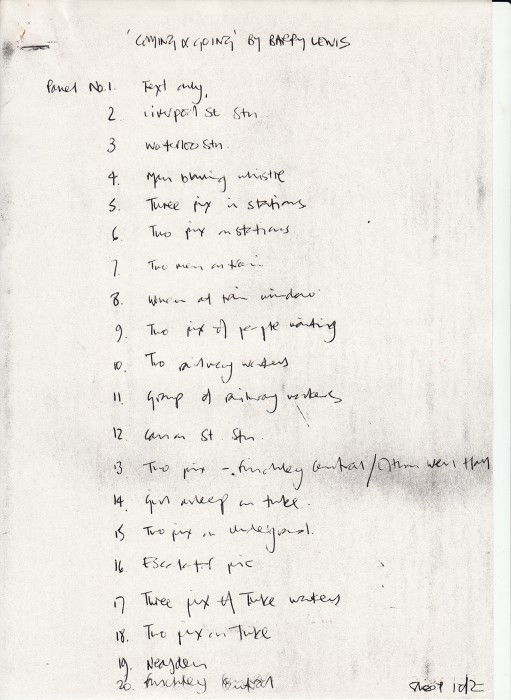 'COMING & GOING' BY BARRY LEWIS
Panel No. 1. Text only.
2 Liverpool St Stn
3 Waterloo Stn.
4. Man blowing whistle
5. Three pix in stations
6. Two pix in stations
7. Two men on train
8. Woman at train window.
9. Two pix of people waiting
10. Two railway workers
11. Group of railway workers
12 Cannon St. Stn.
13 Two pix - Finchley Central /
14. Girl asleep on tube.
15 Two pix on underground.
16. Escalator pic
17 Three pix of Tube workers
18. Two pix on Tube
19. Neasden
20. Finchley Central
Sheet 1 of 2